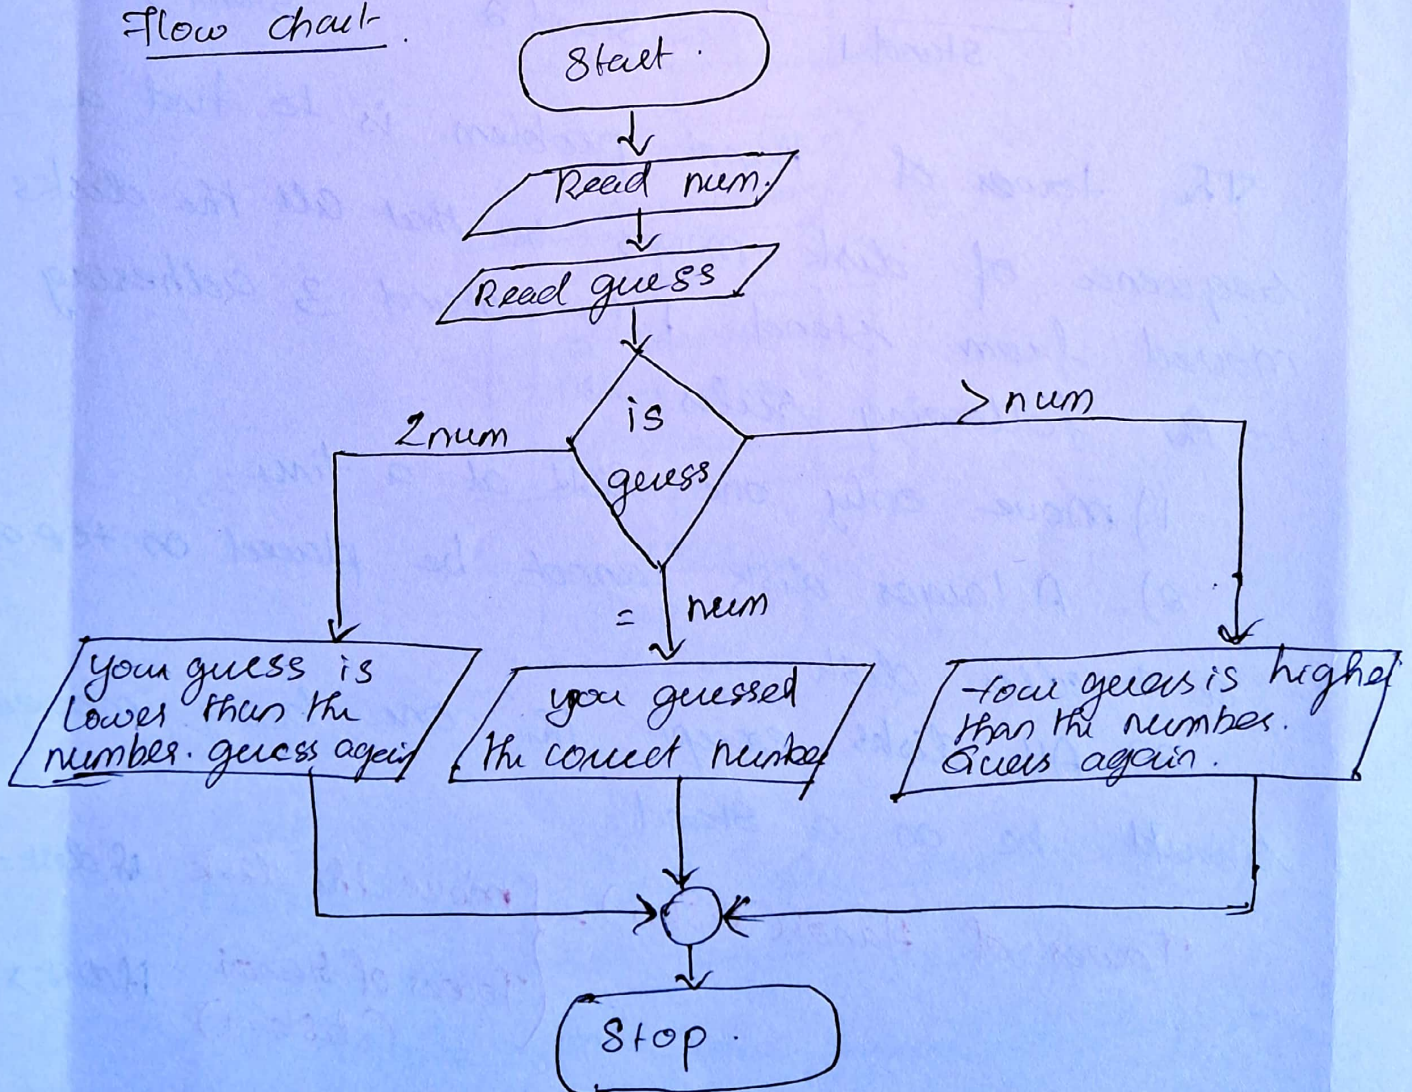 Flow chart.
Start.
Read num.
Read guess
is
guess
<num
>num
= num
your guess is
lower than the
number. guess again
you guessed
the correct number
Your guess is higher
than the number.
Guess again.
Stop.